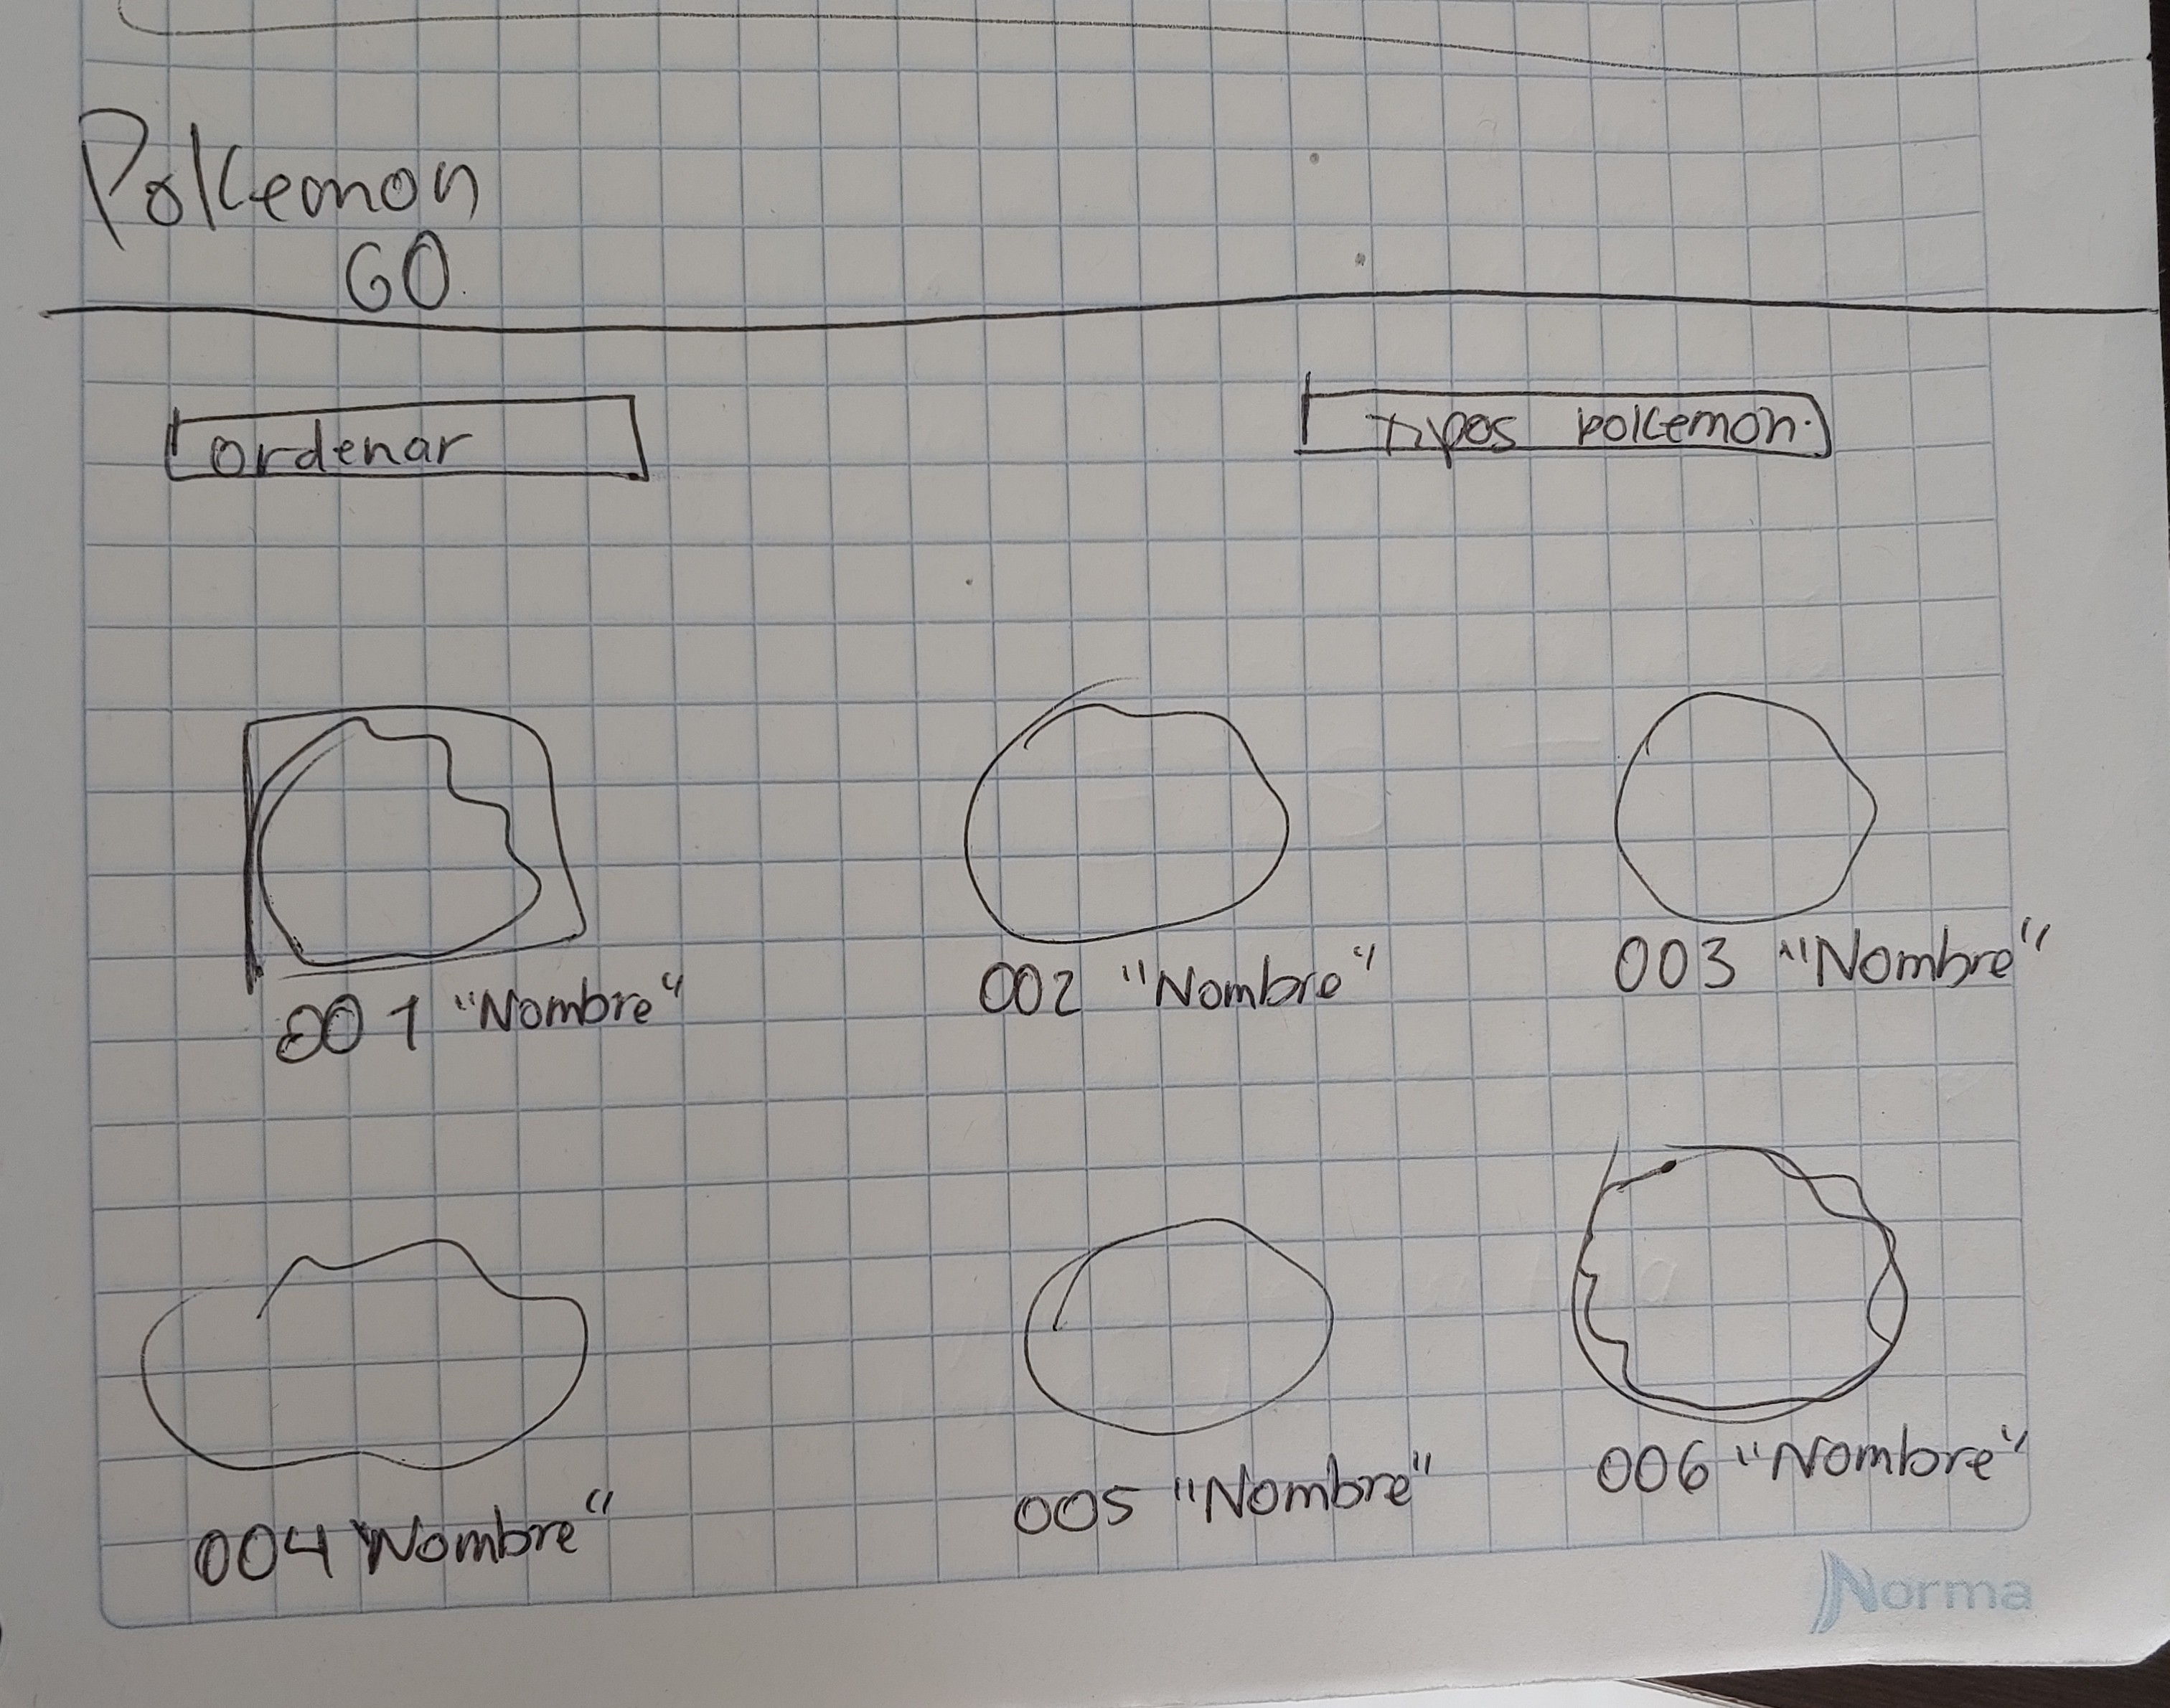 Pokemon
GO
ordenar
Tipos pokemon.
001 "Nombre"
002 "Nombre"
003 "Nombre"
004 "Nombre"
005 "Nombre"
006 "Nombre"
Norma